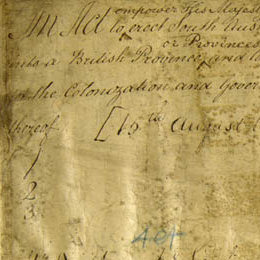 An Act to empower His Majest
to erect South Aus
or Provinces
into a British Province and to
the Colonization and Gover
thereof [15th August 1
1
2
3
Act